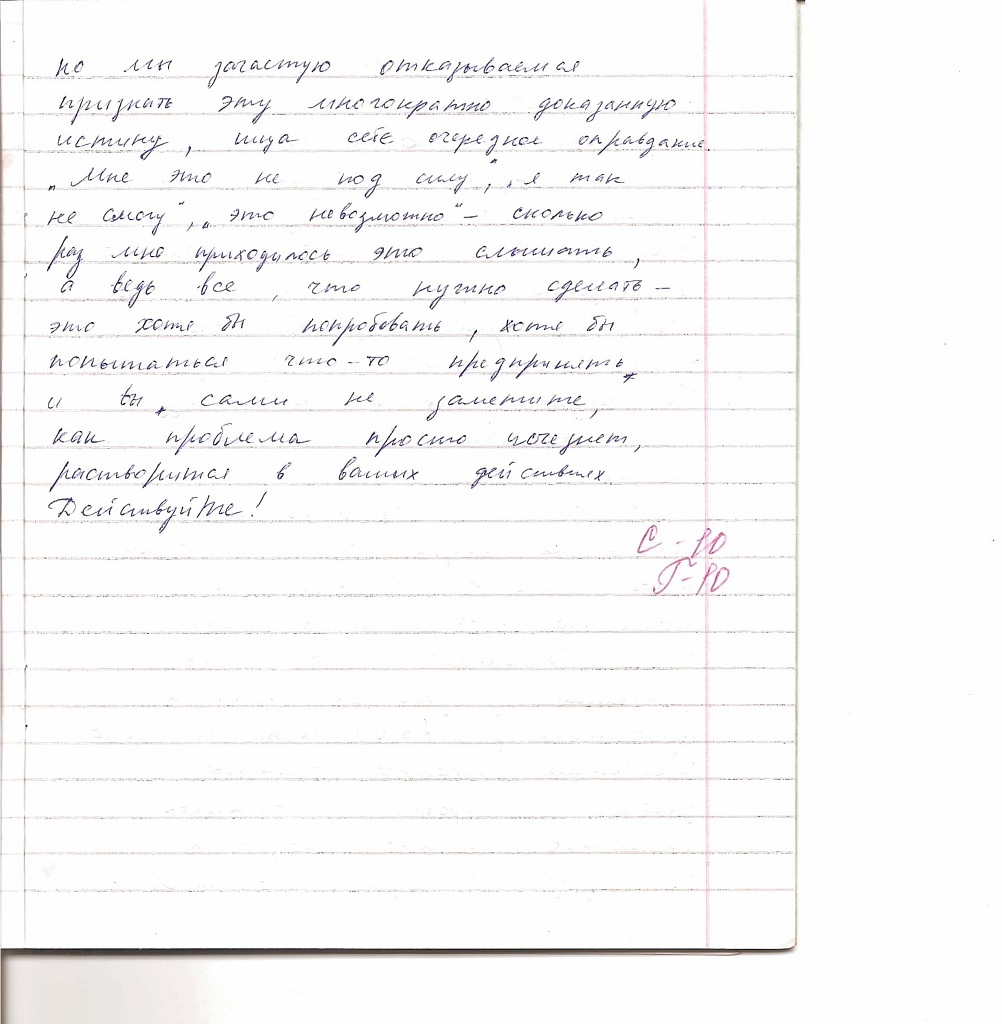 но мы зачастую отказываемся
признать эту многократно доказанную
истину, ища себе очередное оправдание.
„Мне это не под силу", „я так
не смогу", „это невозможно" – сколько
раз мне приходилось это слышать,
а ведь все, что нужно сделать –
это хотя бы попробовать, хотя бы
попытаться что-то предпринять,
и вы, сами не заметите,
как проблема просто исчезнет,
растворится в ваших действиях.
Действуйте!
С - 10
Г - 10